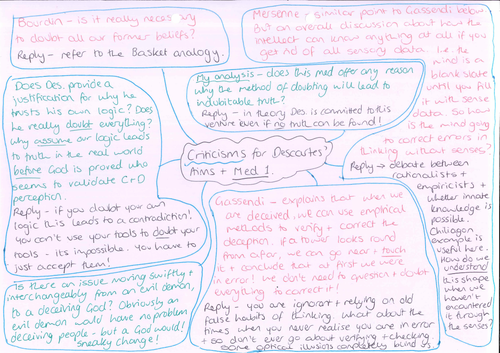 Bourdin - is it really necessary
to doubt all our former beliefs?
Reply - refer to the Basket analogy.
Mersenne - similar point to Gassendi below
But an overall discussion about how the
intellect can know anything at all if you
get rid of all sensory data. i.e. the
mind is a
blank slate
until you fill
it with sense
data. So how
is the mind going
to correct errors in
thinking without senses?
Reply → debate between
rationalists +
empiricists +
whether innate
knowledge is
possible.
Chiliagon
example is
useful here.
How do we
understand
this shape
when we
haven't en-
countered
it through
the senses?
My analysis - does this med offer any reason
why the method of doubting will lead to
indubitable truth?
Reply - in theory Des. is committed to this
venture even if no truth can be found!
Does Des. provide a
justification for why he
trusts his own logic? Does
he really doubt everything?
Why assume our logic leads
to truth in the real world
before God is proved who
seems to validate C+D
perception.
Reply - if you doubt your own
logic this leads to a contradiction!
You can't use your tools to doubt your
tools - its impossible. You have to
just accept them!
Criticisms for Descartes'
Aims + Med 1.
Gassendi - explains that when we
are deceived, we can use empirical
methods to verify + correct the
deception. If a tower looks round
from afar, we can go near + touch
it + conclude that at first we were
in error! We don't need to question + doubt
everything to correct it!
Reply - you are ignorant + relying on old
false habits of thinking. What about the
times when you never realise you are in error
+ so don't ever go about verifying + checking
some optical illusions completely blind us
Is there an issue moving swiftly +
interchangeably from an evil demon,
to a deceiving God? Obviously an
evil demon would have no problem
deceiving people - but a God would!
sneaky change!